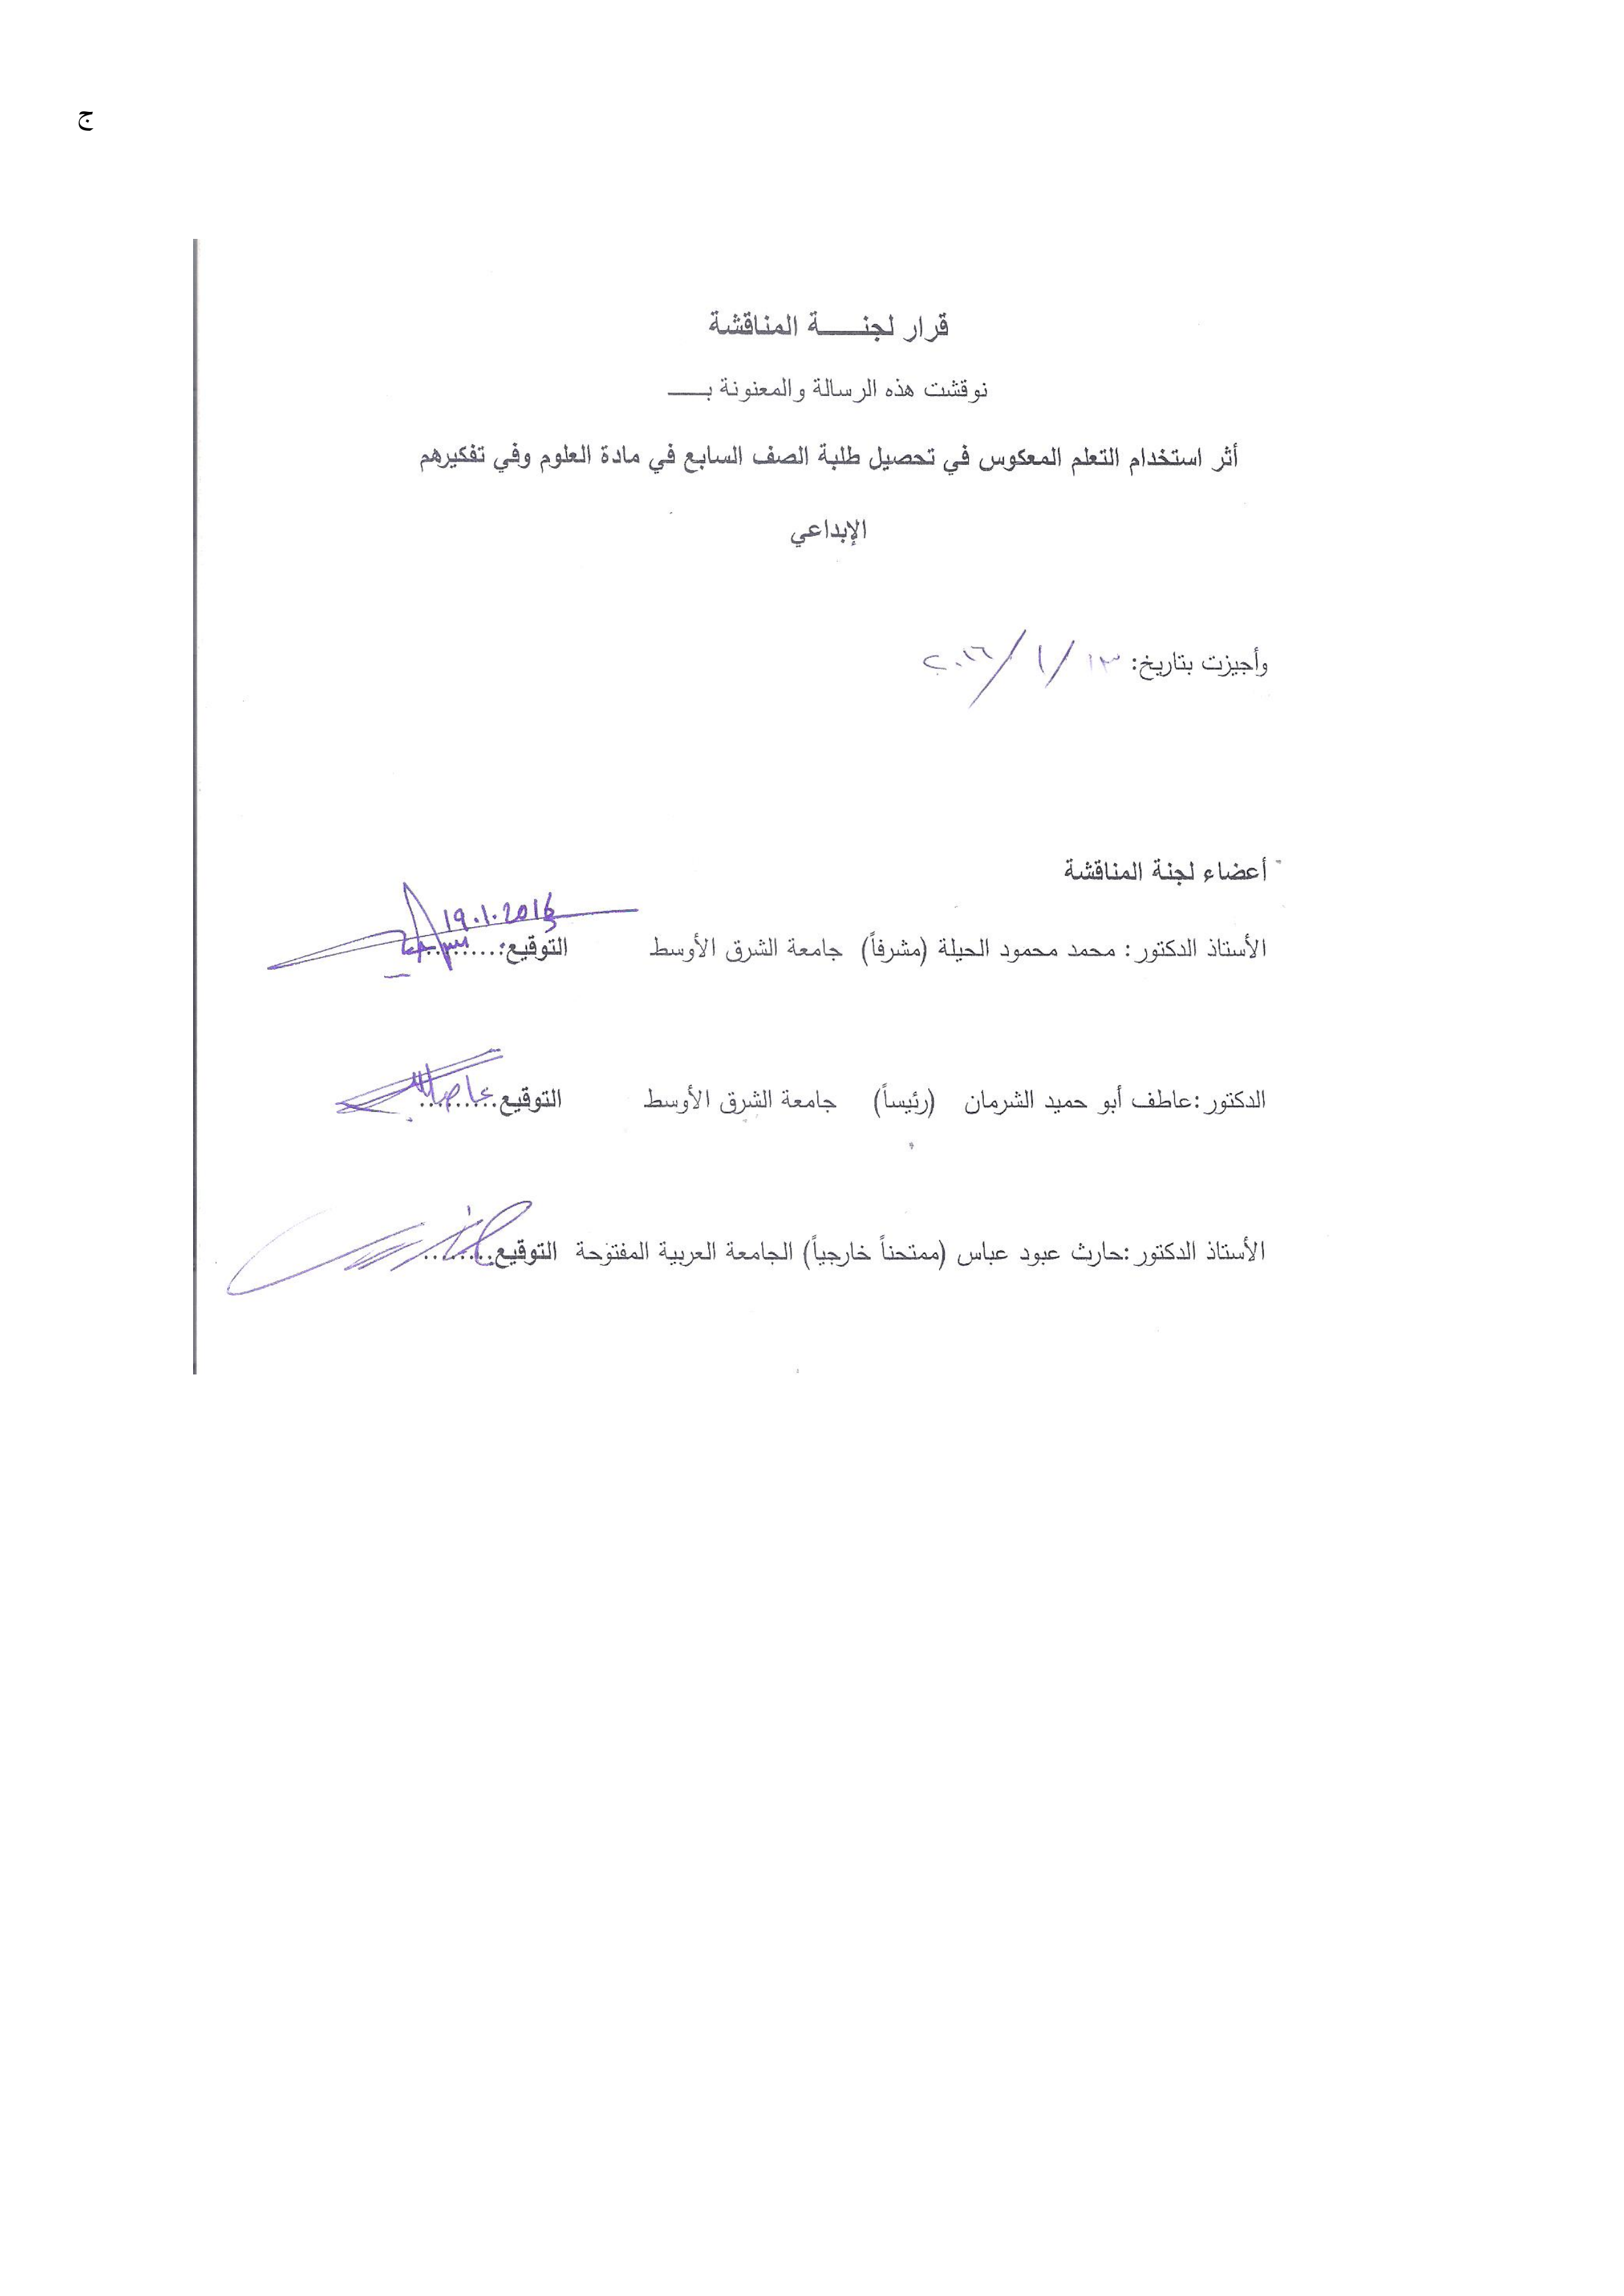 ج
قرار لجنـــــة المناقشة
نوقشت هذه الرسالة والمعنونة بـــــ
أثر استخدام التعلم المعكوس في تحصيل طلبة الصف السابع في مادة العلوم وفي تفكيرهم
الإبداعي
وأجيزت بتاريخ: ١٣ / ١ / ٢٠١٦
أعضاء لجنة المناقشة
19.1.2016
الأستاذ الدكتور: محمد محمود الحيلة (مشرفاً) جامعة الشرق الأوسط التوقيع:.........
الدكتور:عاطف أبو حميد الشرمان (رئيساً) جامعة الشرق الأوسط التوقيع.........
الأستاذ الدكتور:حارث عبود عباس (ممتحناً خارجياً) الجامعة العربية المفتوحة التوقيع.........